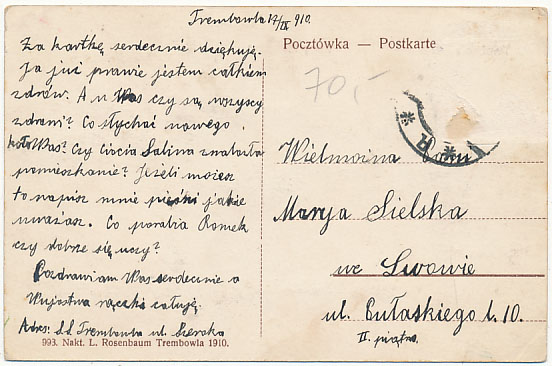 Trembowla 17/IX 910.
Za kartkę serdecznie dziękuję.
Ja już prawie jestem całkiem
zdrów. A u Was czy są wszyscy
zdrowi? Co słychać nowego
koło Was? Czy Ciocia Salina znalazła
pomieszkanie? Jeżeli możesz
to napisz mnie piosnki jakie
uważasz. Co porabia Romek
czy dobrze się uczy?
Pozdrawiam Was serdecznie a
Wujostwu rączki całuję.
Adres: S.S. Trembowla ul. Szeroka
993. Nakt. L. Rosenbaum Trembowla 1910.
Pocztówka — Postkarte
70,-
Wielmożna Pani
Marya Sielska
we Lwowie
ul. Pułaskiego l. 10.
II. piątro.